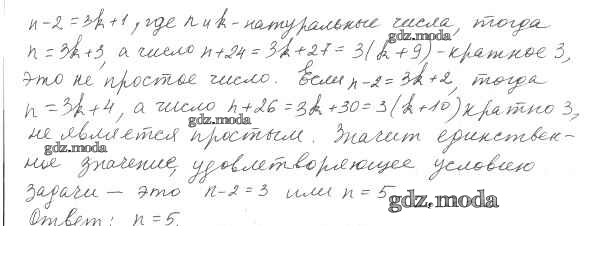 n-2=3k+1, где n и k - натуральные числа, тогда
gdz.moda
n=3k+3, а число n+24=3k+27=3(k+9) - кратное 3,
это не простое число. Если n-2=3k+2, тогда
n=3k+4, а число n+26=3k+30=3(k+10) кратно 3,
gdz.moda
не является простым. Значит единствен-
gdz.moda
ное значение, удовлетворяющее условию
задачи — это n-2=3 или n=5
gdz.moda
Ответ: n=5.